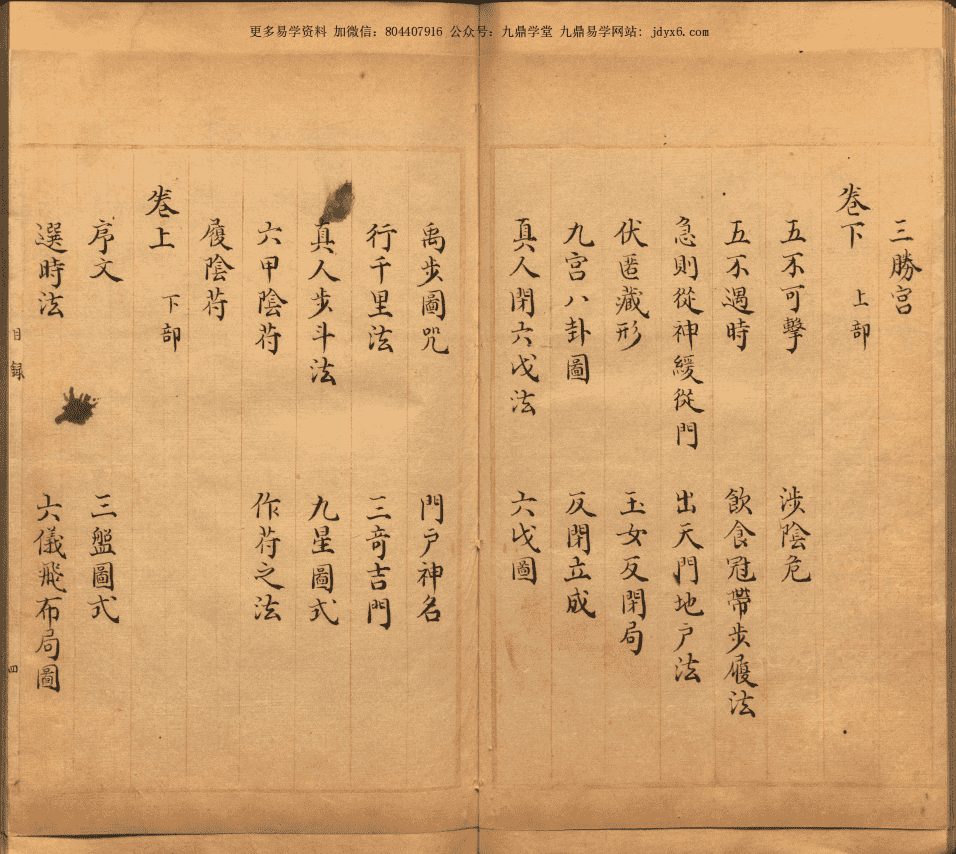 更多易学资料 加微信：804407916 公众号：九鼎学堂 九鼎易学网站：jdyx6.com
三勝宮
卷下 上部
五不可擊 涉陰危
五不遇時 飲食冠帶步履法
急則從神緩從門 出天門地户法
伏匿藏形 玉女反閉局
九宫八卦圖 反閉立成
真人閉六戊法 六戊圖
禹步圖咒 門户神名
行千里法 三竒吉門
真人步斗法 九星圖式
六甲陰苻 作苻之法
履陰苻
卷上 下部
序文 三盤圖式
選時法 六儀飛布局圖
目録 四